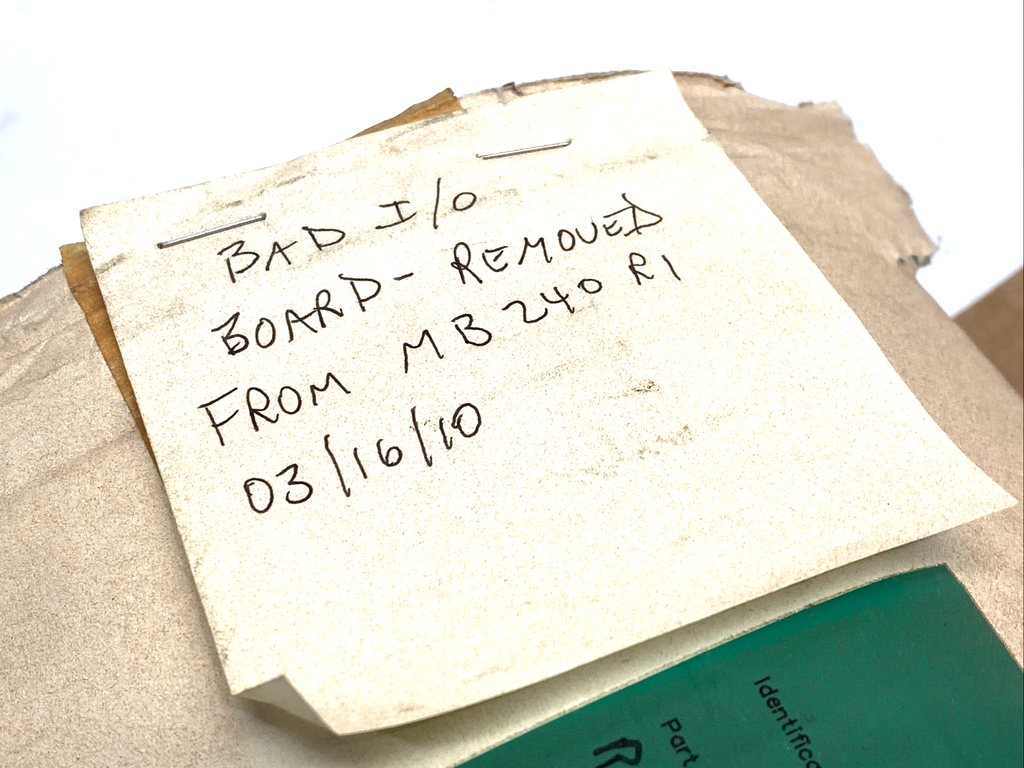 BAD I/O
BOARD- REMOVED
FROM MB 240 R1
03/16/10
Part